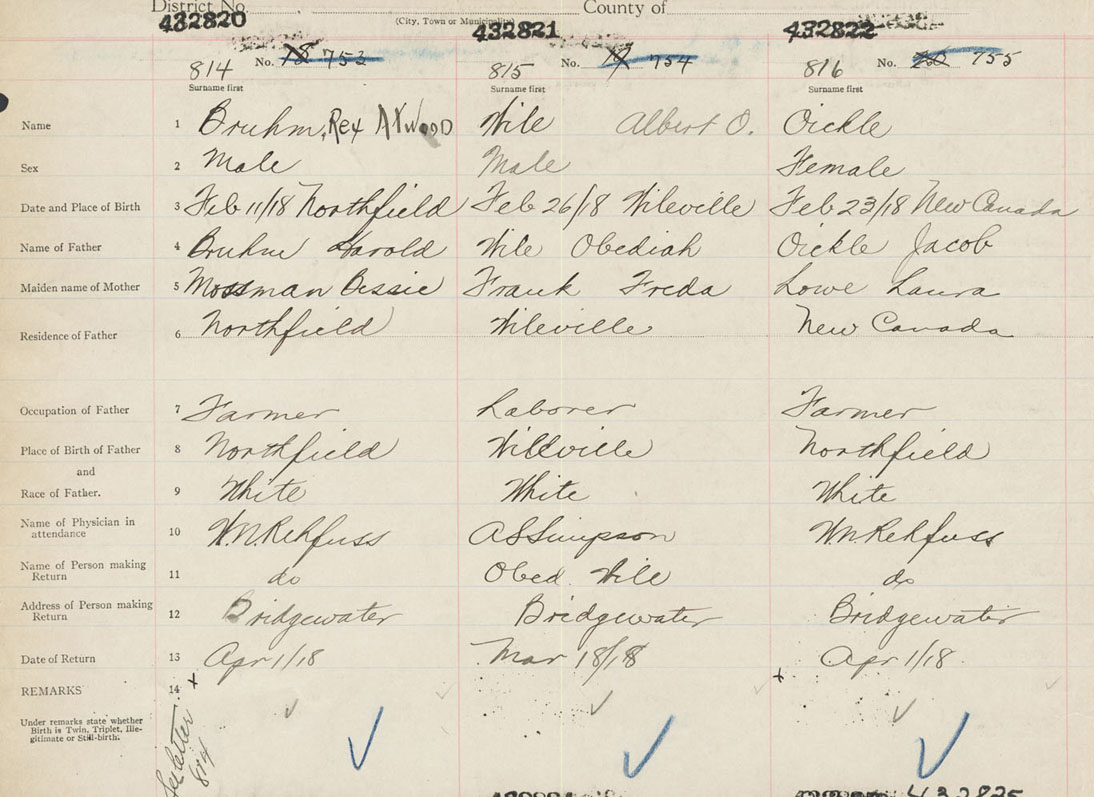 District No. County of
(City, Town or Municipality)
432820 432821 432822
814 No. 753 815 No. 19 754 816 No. 20 755
Surname first Surname first Surname first
Name 1 Bruhm, Rex Atwood Wile Albert O. Oickle
Sex 2 Male Male Female
Date and Place of Birth 3 Feb 11/18 Northfield Feb 26/18 Wileville Feb 23/18 New Canada
Name of Father 4 Bruhm Harold Wile Obediah Oickle Jacob
Maiden name of Mother 5 Mossman Bessie Frank Freda Lowe Laura
Residence of Father 6 Northfield Wileville New Canada
Occupation of Father 7 Farmer Laborer Farmer
Place of Birth of Father 8 Northfield Willville Northfield
and
Race of Father. 9 White White White
Name of Physician in attendance 10 W.N. Rehfuss A S Simpson W.N. Rehfuss
Name of Person making Return 11 do Obed. Wile do
Address of Person making Return 12 Bridgewater Bridgewater Bridgewater
Date of Return 13 Apr 1/18 Mar 18/18 Apr 1/18
REMARKS 14
Under remarks state whether
Birth is Twin, Triplet, Ille-
gitimate or Still-birth.
See letter
814
432825